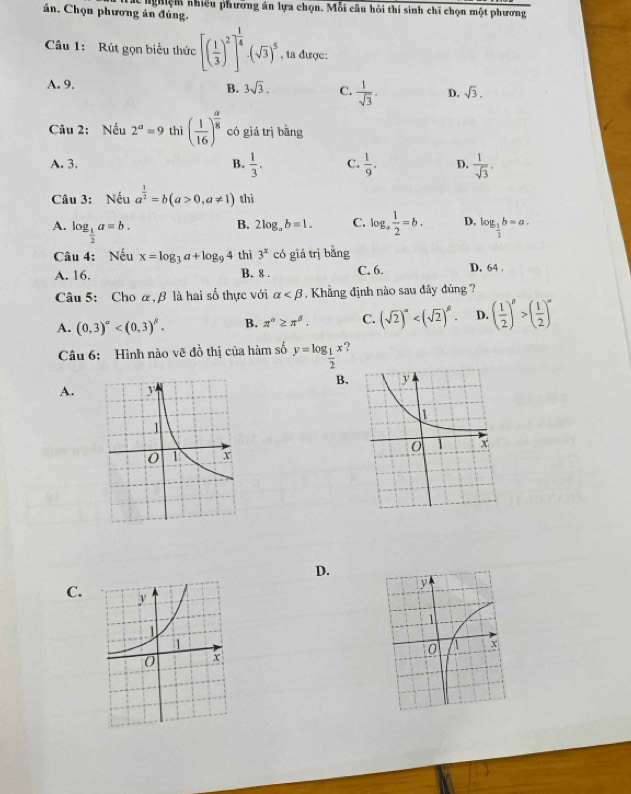 nghiệm nhiều phương án lựa chọn. Mỗi câu hỏi thí sinh chỉ chọn một phương
án. Chọn phương án đúng.
Câu 1: Rút gọn biểu thức [(1/3)^2]^(1/4) . (√3)^5, ta được:
A. 9. B. 3√3. C. 1/√3. D. √3.
Câu 2: Nếu 2^a = 9 thì (1/16)^(a/8) có giá trị bằng
A. 3. B. 1/3. C. 1/9. D. 1/√3.
Câu 3: Nếu a^(1/2) = b (a > 0, a ≠ 1) thì
A. log_(1/2) a = b. B. 2log_a b = 1. C. log_a 1/2 = b. D. log_(1/2) b = a.
Câu 4: Nếu x = log_3 a + log_9 4 thì 3^x có giá trị bằng
A. 16. B. 8. C. 6. D. 64.
Câu 5: Cho α, β là hai số thực với α < β. Khẳng định nào sau đây đúng ?
A. (0,3)^α < (0,3)^β. B. π^α ≥ π^β. C. (√2)^α < (√2)^β. D. (1/2)^β > (1/2)^α
Câu 6: Hình nào vẽ đồ thị của hàm số y = log_(1/2) x?
A. B.
y y
1 1
O 1 x O 1 x
C. D.
y y
1 1
O 1 x O 1 x